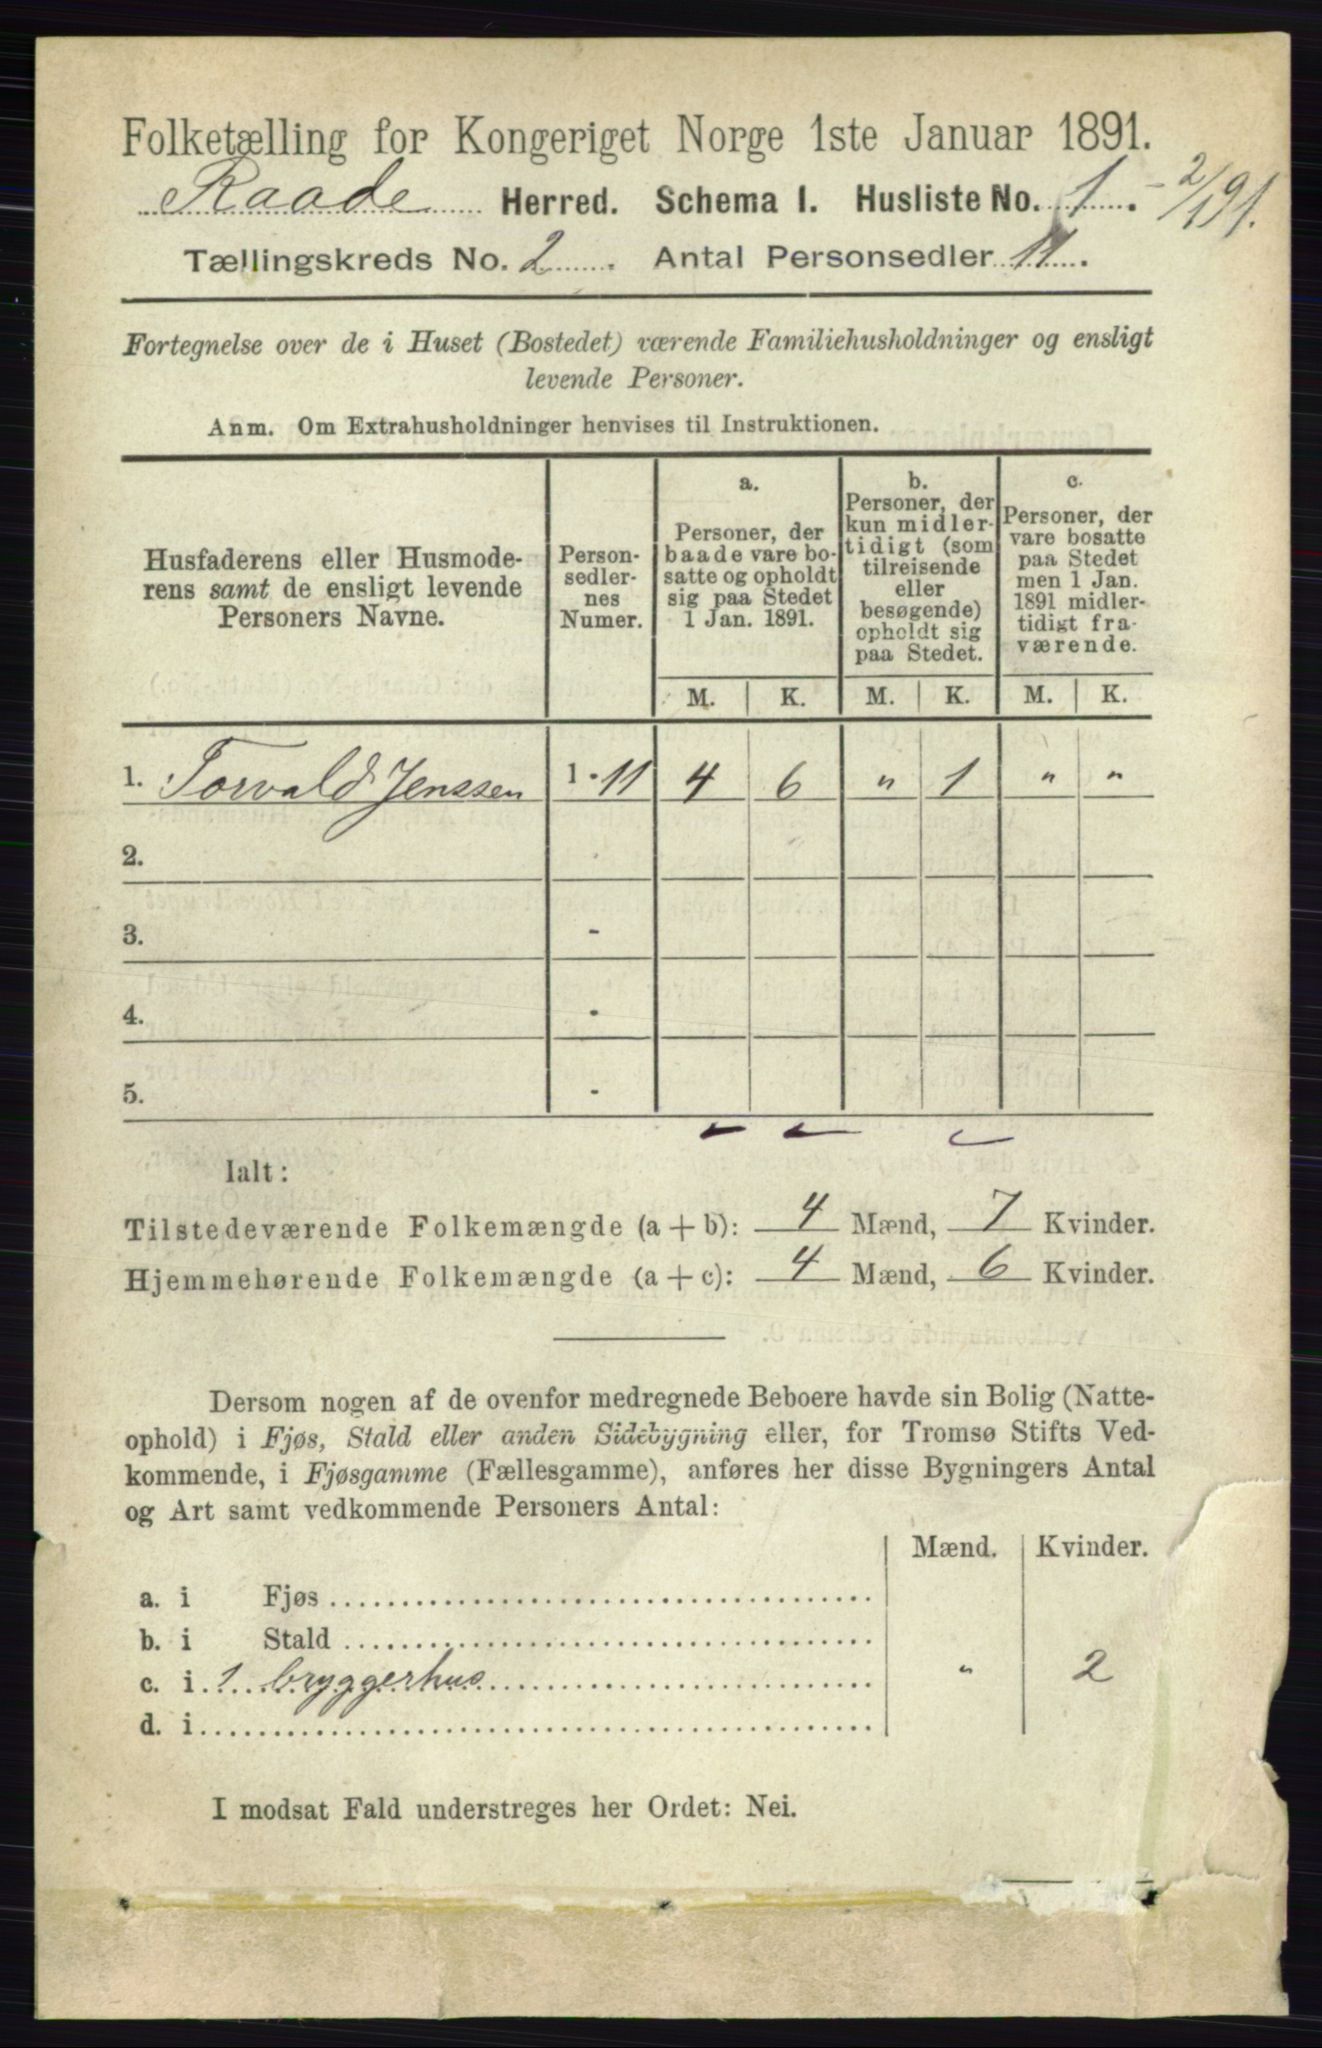 Folketælling for Kongeriget Norge 1ste Januar 1891.
Raade Herred. Schema I. Husliste No. 1. - 2/1 91.
Tællingskreds No. 2. Antal Personsedler 11.
Fortegnelse over de i Huset (Bostedet) værende Familiehusholdninger og ensligt
levende Personer.
Anm. Om Extrahusholdninger henvises til Instruktionen.
Husfaderens eller Husmode-
rens samt de ensligt levende
Personers Navne.
Person-
sedler-
nes
Numer.
a.
Personer, der
baade vare bo-
satte og opholdt
sig paa Stedet
1 Jan. 1891.
b.
Personer, der
kun midler-
tidigt (som
tilreisende
eller
besøgende)
opholdt sig
paa Stedet.
c.
Personer, der
vare bosatte
paa Stedet
men 1 Jan.
1891 midler-
tidigt fra-
værende.
M. K. M. K. M. K.
1. Torvald Jenssen 1 - 11 4 6 " 1 " "
2.
3. -
4. -
5. -
Ialt:
Tilstedeværende Folkemængde (a + b): 4 Mænd, 7 Kvinder.
Hjemmehørende Folkemængde (a + c): 4 Mænd, 6 Kvinder.
Dersom nogen af de ovenfor medregnede Beboere havde sin Bolig (Natte-
ophold) i Fjøs, Stald eller anden Sidebygning eller, for Tromsø Stifts Ved-
kommende, i Fjøsgamme (Fællesgamme), anføres her disse Bygningers Antal
og Art samt vedkommende Personers Antal:
Mænd. Kvinder.
a. i Fjøs
b. i Stald
c. i 1 bryggerhus " 2
d. i
I modsat Fald understreges her Ordet: Nei.